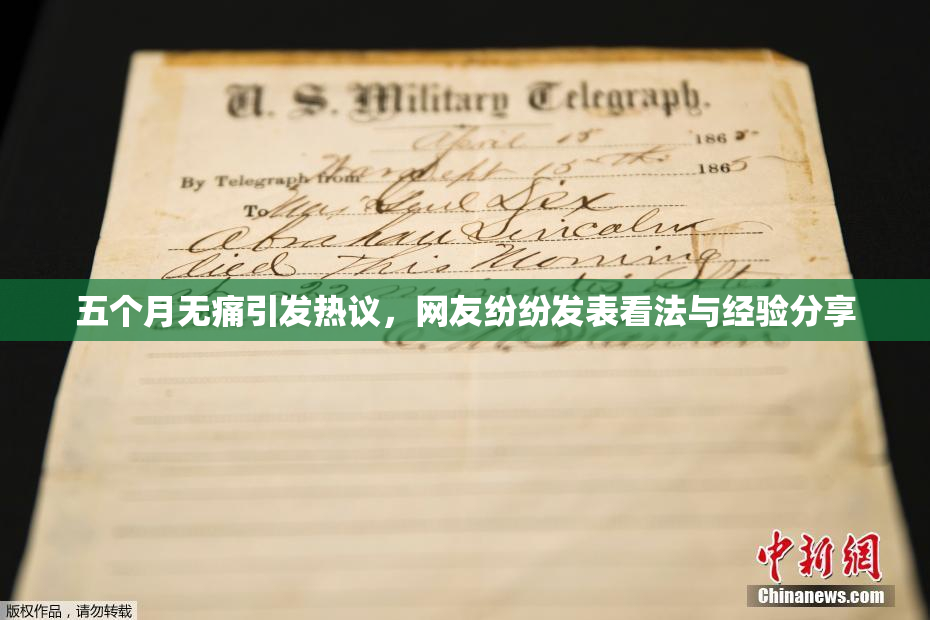 U. S. Military Telegraph.
April 15 1865
By Telegraph from War Dept 15th 1865
To Maj Genl Dix
Abraham Lincoln
died This Morning
22 minutes after
五个月无痛引发热议，网友纷纷发表看法与经验分享
E. M. Stanton
中新网
Chinanews.com
版权作品，请勿转载